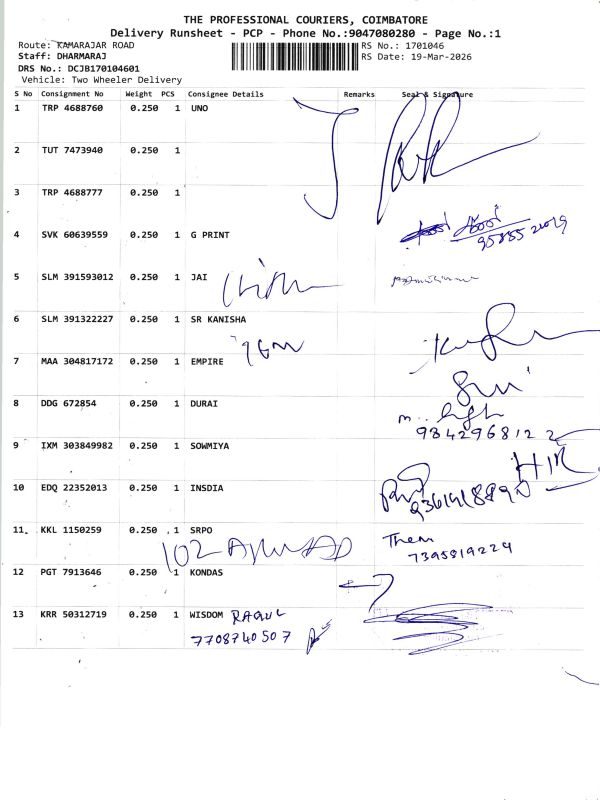 THE PROFESSIONAL COURIERS, COIMBATORE
Delivery Runsheet - PCP - Phone No.:9047080280 - Page No.:1
Route: KAMARAJAR ROAD
RS No.: 1701046
Staff: DHARMARAJ
RS Date: 19-Mar-2026
DRS No.: DCJB170104601
Vehicle: Two Wheeler Delivery
S No Consignment No Weight PCS Consignee Details Remarks Seal & Signature
1 TRP 4688760 0.250 1 UNO
2 TUT 7473940 0.250 1
3 TRP 4688777 0.250 1
4 SVK 60639559 0.250 1 G PRINT
5 SLM 391593012 0.250 1 JAI
6 SLM 391322227 0.250 1 SR KANISHA
7 MAA 304817172 0.250 1 EMPIRE
8 DDG 672854 0.250 1 DURAI
9842968122
9 IXM 303849982 0.250 1 SOWMIYA
10 EDQ 22352013 0.250 1 INSDIA
11. KKL 1150259 0.250 1 SRPO
7395819224
12 PGT 7913646 0.250 1 KONDAS
13 KRR 50312719 0.250 1 WISDOM RAGUL
7708740507